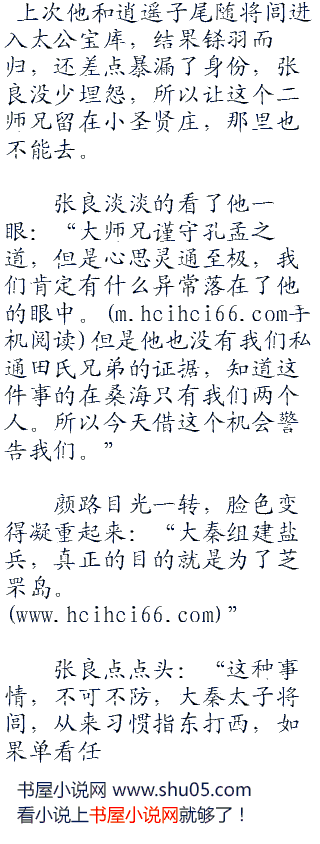 上次他和逍遥子尾随将闾进
入太公宝库，结果铩羽而
归，还差点暴漏了身份，张
良没少埋怨，所以让这个二
师兄留在小圣贤庄，那里也
不能去。
张良淡淡的看了他一
眼：“大师兄谨守孔孟之
道，但是心思灵通至极，我
们肯定有什么异常落在了他
的眼中。(m.hcihci66.com手
机阅读)但是他也没有我们私
通田氏兄弟的证据，知道这
件事的在桑海只有我们两个
人。所以今天借这个机会警
告我们。”
颜路目光一转，脸色变
得凝重起来：“大秦组建盐
兵，真正的目的就是为了芝
罘岛。
(www.hcihci66.com)”
张良点点头：“这种事
情，不可不防，大秦太子将
闾，从来习惯指东打西，如
果单看任
书屋小说网 www.shu05.com
看小说上书屋小说网就够了！